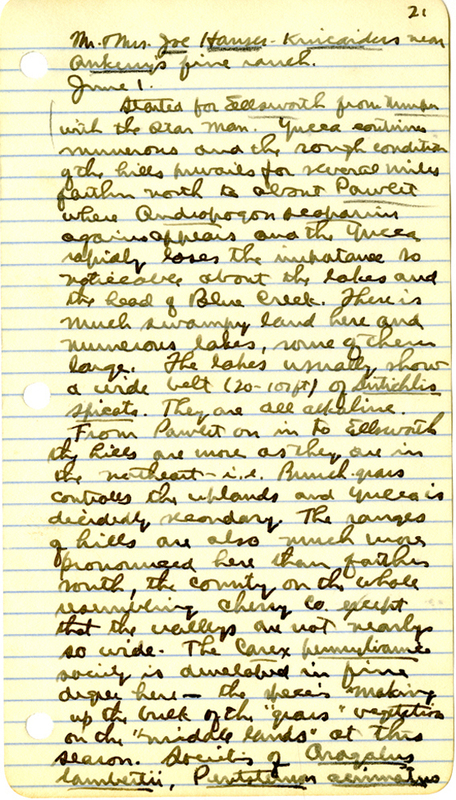 21
Mr. & Mrs. Joe Hanser - Kincaiders near
Ankeny's fine ranch.
June 1.
Started for Ellsworth from
with the star man. Yucca continues
numerous and the rough condition
of the hills prevails for several miles
farther north to about Pawlett
where Andropogon scoparius
again appears and the Yucca
rapidly loses the importance so
noticeable about the lakes and
the head of Blue Creek. There is
much swampy land here and
numerous lakes, some of them
large. The lakes usually show
a wide belt (20-100ft) of Distichlis
spicata. They are all alkaline.
From Pawlett on in to Ellsworth
the hills are more as they are in
the northeast - i.e. Bunch-grass
controlls the uplands and Yucca is
decidedly secondary. The ranges
of hills are also much more
pronounced here than farther
south, the county on the whole
resembling Cherry Co. except
that the valleys are not nearly
so wide. The Carex pennsylvanica
society is developed in fine
degree here - the species making
up the bulk of the "grass" vegetation
on the "middle lands" at this
season. Societies of Aragalus
lambertii, Pentstemon acuminatus